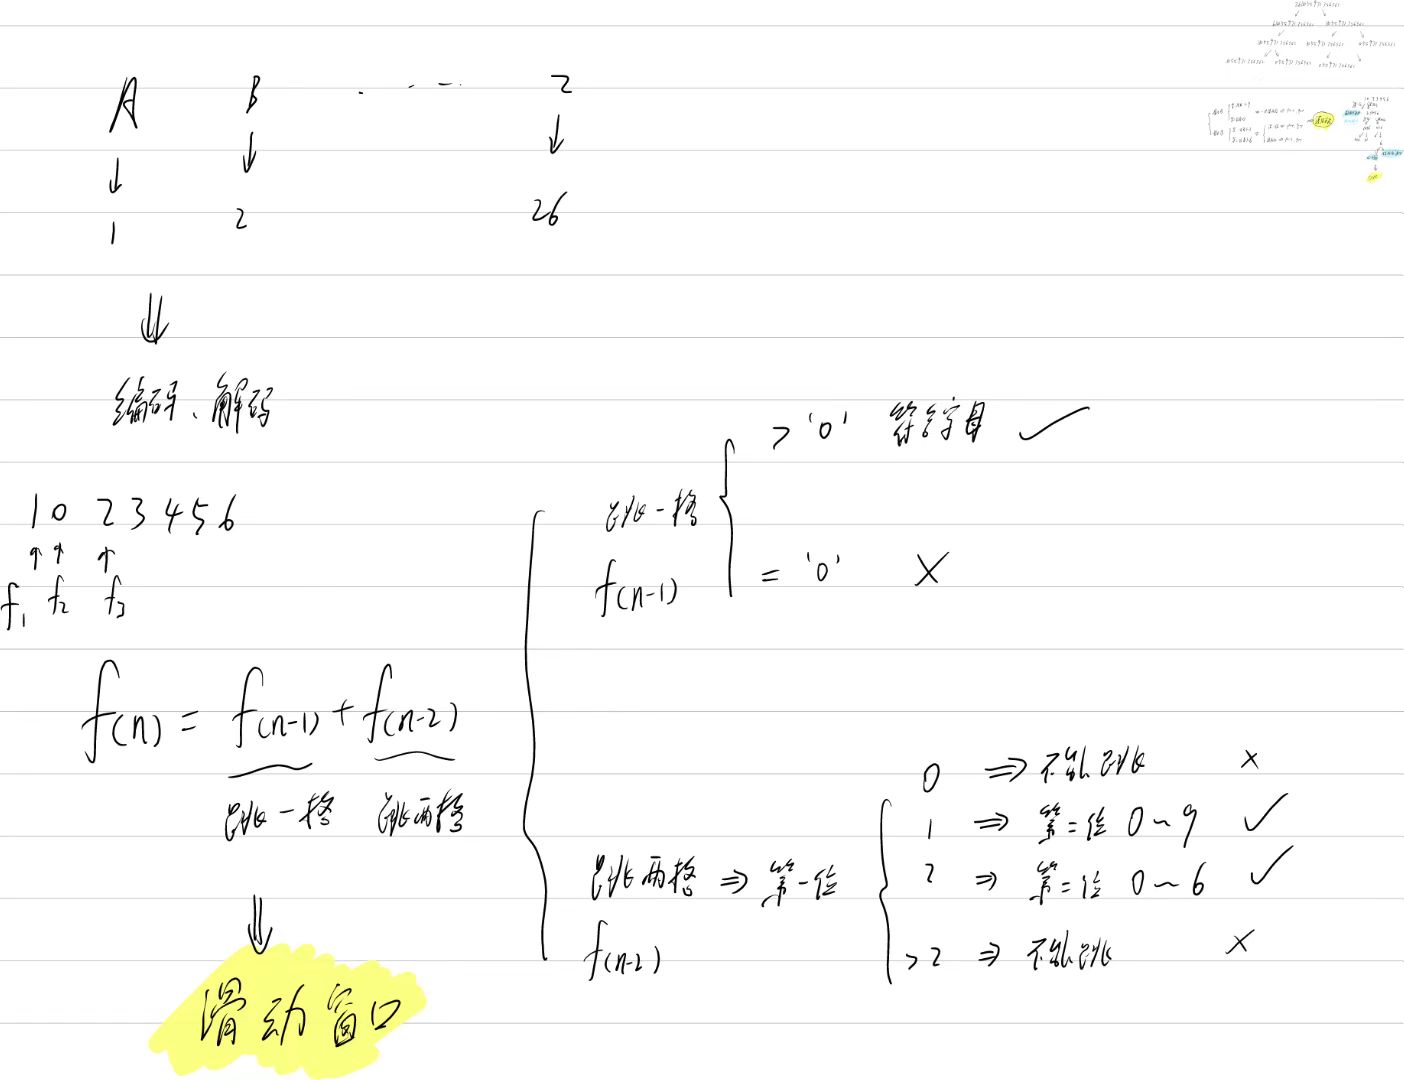 A B . . — . Z
↓ ↓ ↓
1 2 26
⇓
编码、解码
10 23456
↑ ↑ ↑
f1 f2 f3
f(n) = f(n-1) + f(n-2)
跳一格 跳两格
⇓
滑动窗口
跳一格
f(n-1)
> '0' 符合字母 ✓
= '0' ×
跳两格 ⇒ 第一位
f(n-2)
0 ⇒ 不能跳 ×
1 ⇒ 第二位 0~9 ✓
2 ⇒ 第二位 0~6 ✓
>2 ⇒ 不能跳 ×